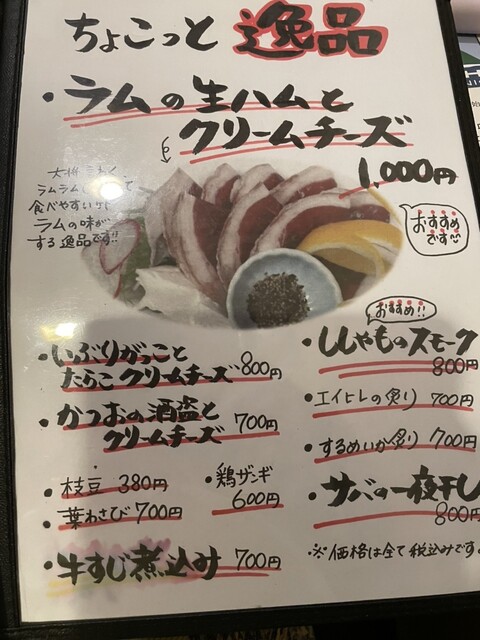 ちょこっと 逸品
・ラムの生ハムと
クリームチーズ
1,000円
大将
ラムラム
食べやすい
ラムの味が
する逸品です!!
おすすめ
です
・いぶりがっこと
たらこクリームチーズ 800円
・かつおの酒盗と
クリームチーズ 700円
・枝豆 380円
・葉わさび 700円
・鶏ザンギ
600円
・牛すじ煮込み 700円
おすすめ!!
・ししゃものスモーク
800円
・エイヒレの炙り 700円
・するめいか炙り 700円
・サバの一夜干し
800円
※価格は全て税込みです。